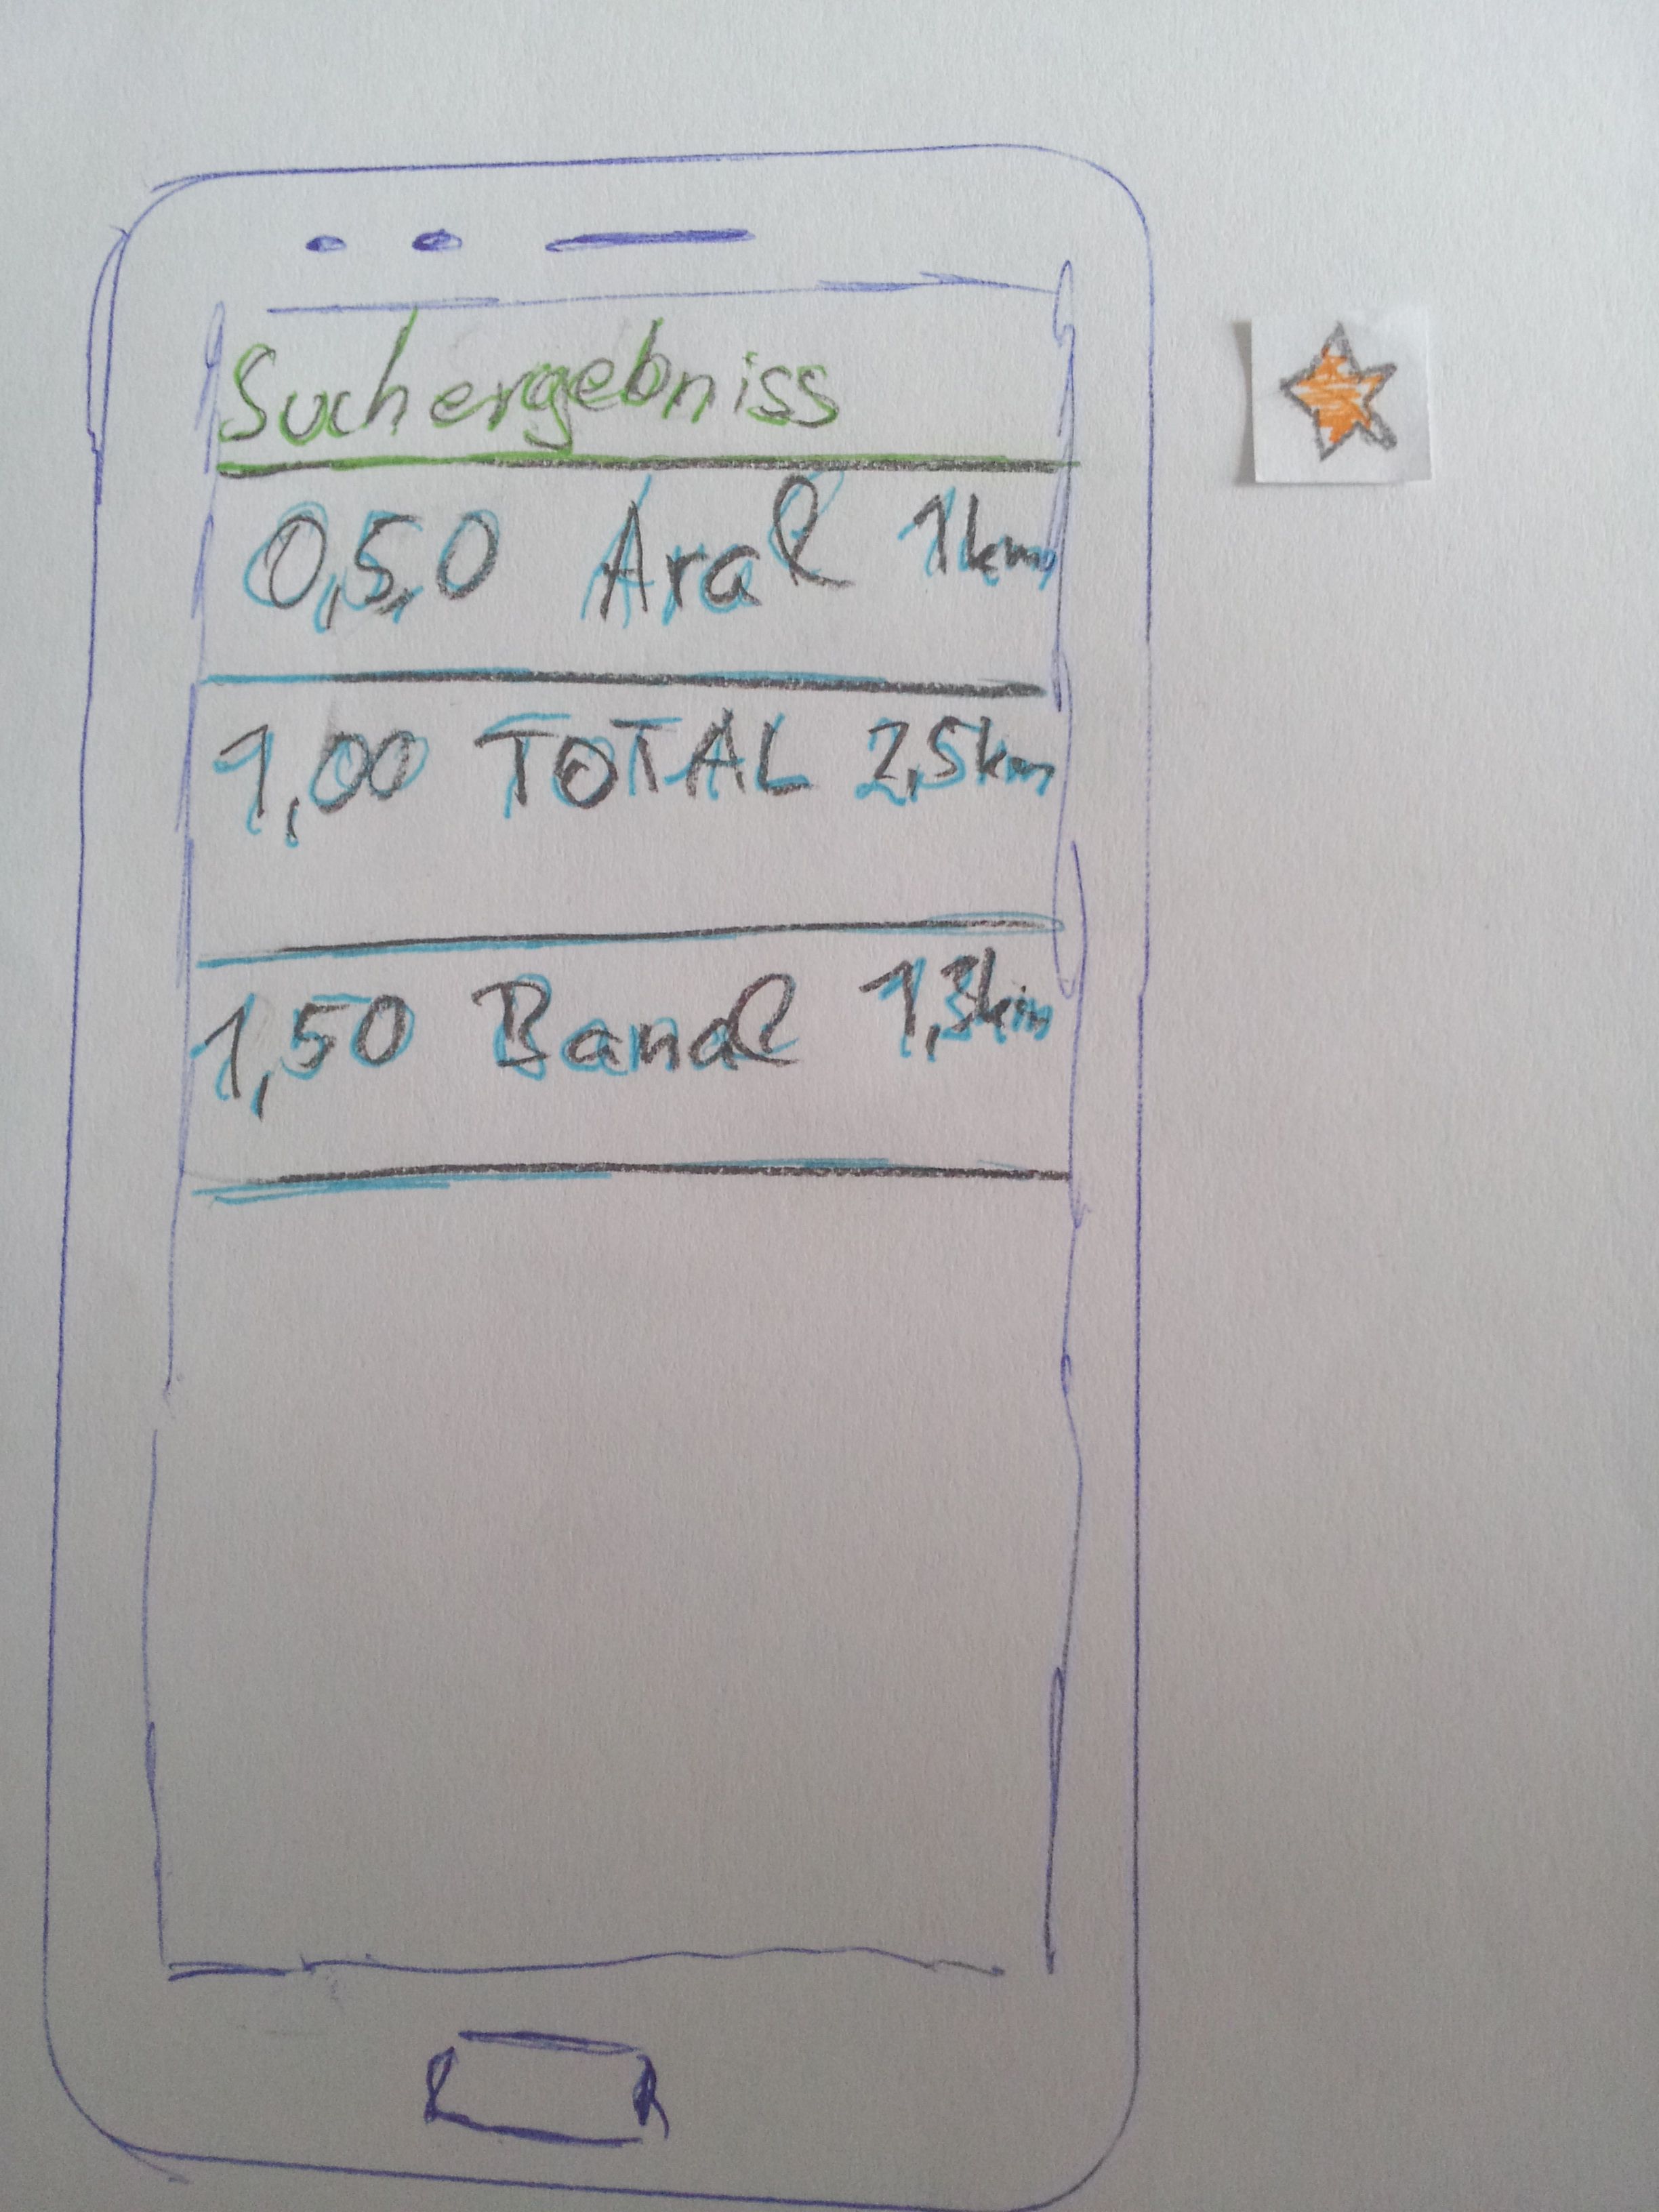 Suchergebniss
0,5,0 Aral 1km
1,00 TOTAL 2,5km
1,50 Banal 1,3km